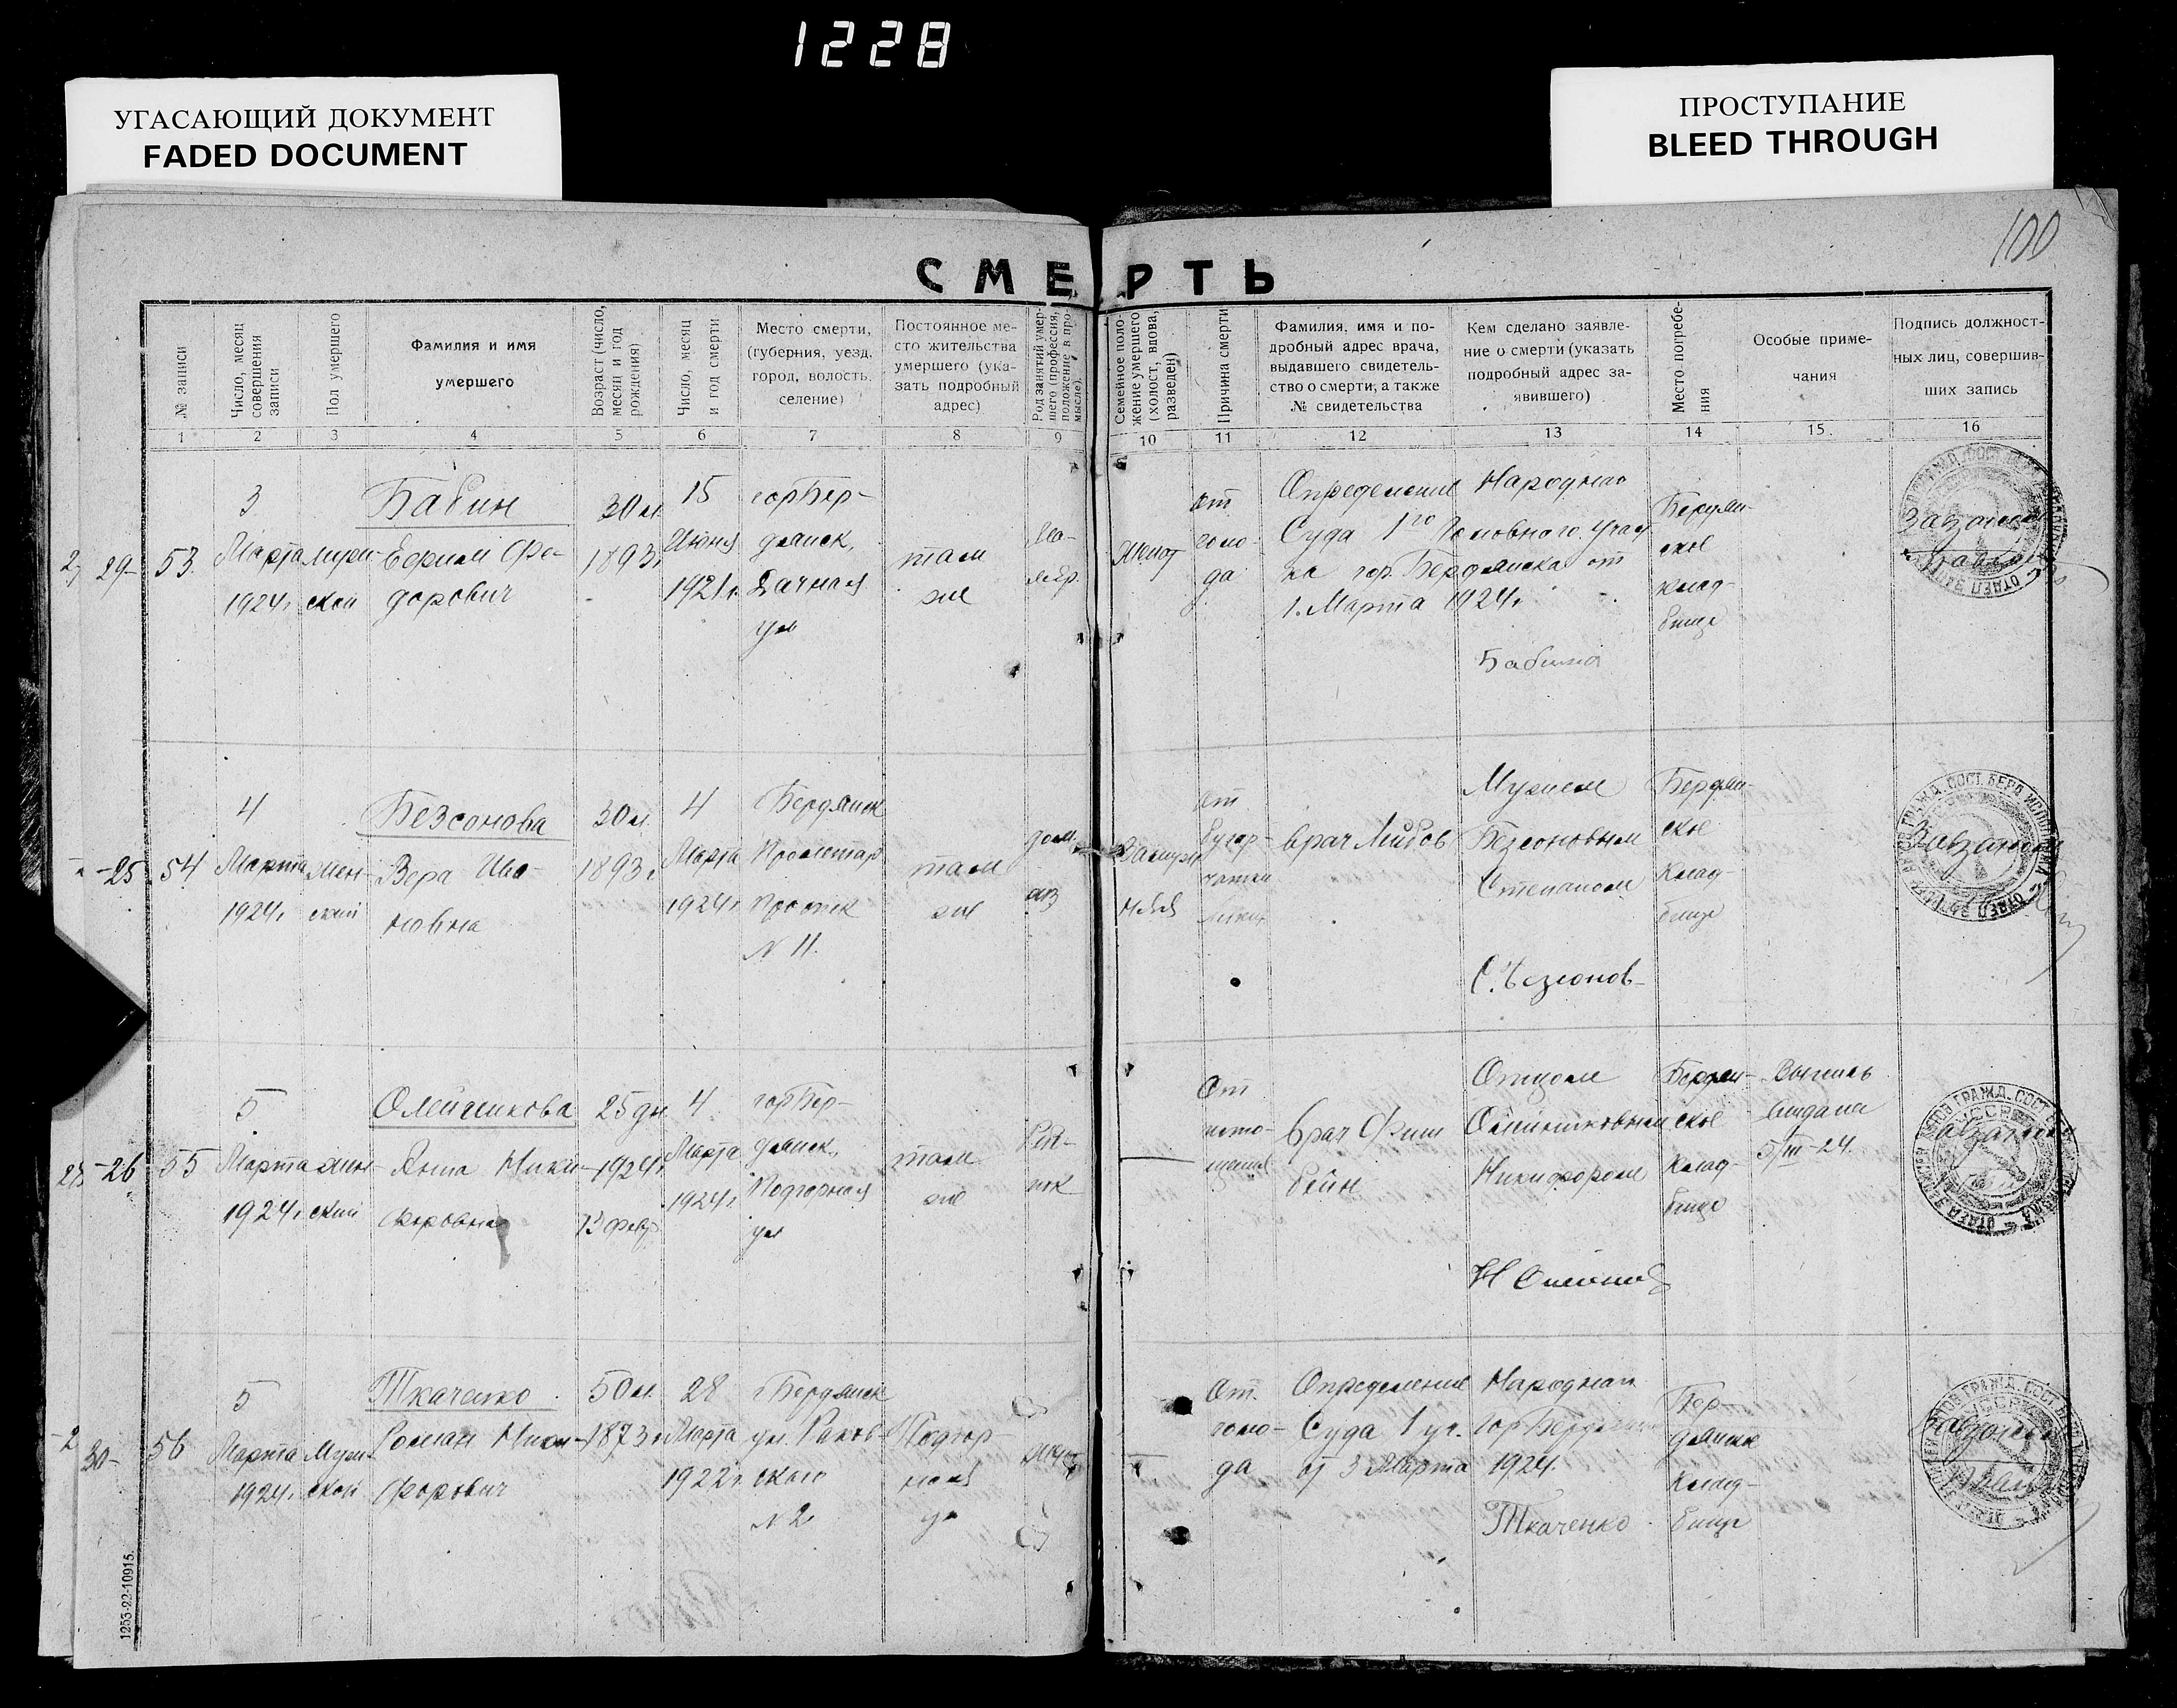 1228
УГАСАЮЩИЙ ДОКУМЕНТ
FADED DOCUMENT
ПРОСТУПАНИЕ
BLEED THROUGH
100
СМЕРТЬ
№ записи
Число, месяц совершения записи
Пол умершего
Фамилия и имя
умершего
Возраст (число, месяц и год рождения)
Число, месяц и год смерти
Место смерти,
(губерния, уезд,
город, волость,
селение)
Постоянное ме-
сто жительства
умершего (ука-
зать подробный
адрес)
Род занятий умер-
шего (профессия,
положение в про-
мысле).
Семейное поло-
жение умершего
(холост, вдова,
разведен)
Причина смерти
Фамилия, имя и по-
дробный адрес врача,
выдавшего свидетель-
ство о смерти, а также
№ свидетельства
Кем сделано заявле-
ние о смерти (указать
подробный адрес за-
явившего)
Место погребе-
ния
Особые приме-
чания
Подпись должност-
ных лиц, совершив-
ших запись
1 2 3 4 5 6 7 8 9 10 11 12 13 14 15 16
29
53.
3
Марта
1924г
муж-
ской
Бабин
Ефим Фе-
дорович
30 л.
1893г
15
Июня
1921г.
гор Бер-
дянск,
Дачная
ул
там
же
женат
от
голо-
да
Определение Народного
Суда 1го
гор. Бердянска от
1. Марта 1924г.
Бабина
Бердян-
ское
клад-
бище
25
54
4
Марта
1924г
жен-
ский
Безсонова
Вера Ива-
новна
30 л.
1893г
4
Марта
1924г
Бердянск
Пролетар
№ 11.
там
же
дом.
хоз
Замуж
от
врач
Мужем
Безсоновым
Степаном
Бердян-
ское
клад-
бище
26
55
5
Марта
1924г
жен
ский
Олейникова
Анна Ники-
форовна
25 дн
1924г
4
Марта
1924г
гор Бер-
дянск,
Подгорная
ул
там
же
От
исто-
щения
врач Фиш
бейн
Отцом
Олейниковым
Никифором
Бердян-
ское
клад-
бище
Выпись
выдана
5/III-24.
30
56
5
Марта
1924г
Муж-
ской
Ткаченко
Роман Ники-
форович
50 л.
1873г
28
Марта
1922г
Бердянск
ул. Раков-
ского
№ 2
Подгор-
ная
ул
От
голо-
да
Определение Народнаго
Суда 1 уч. гор Бердянска
от 3 Марта 1924.
Ткаченко
Бер-
дянское
Клад-
бище
1253-22-10915.